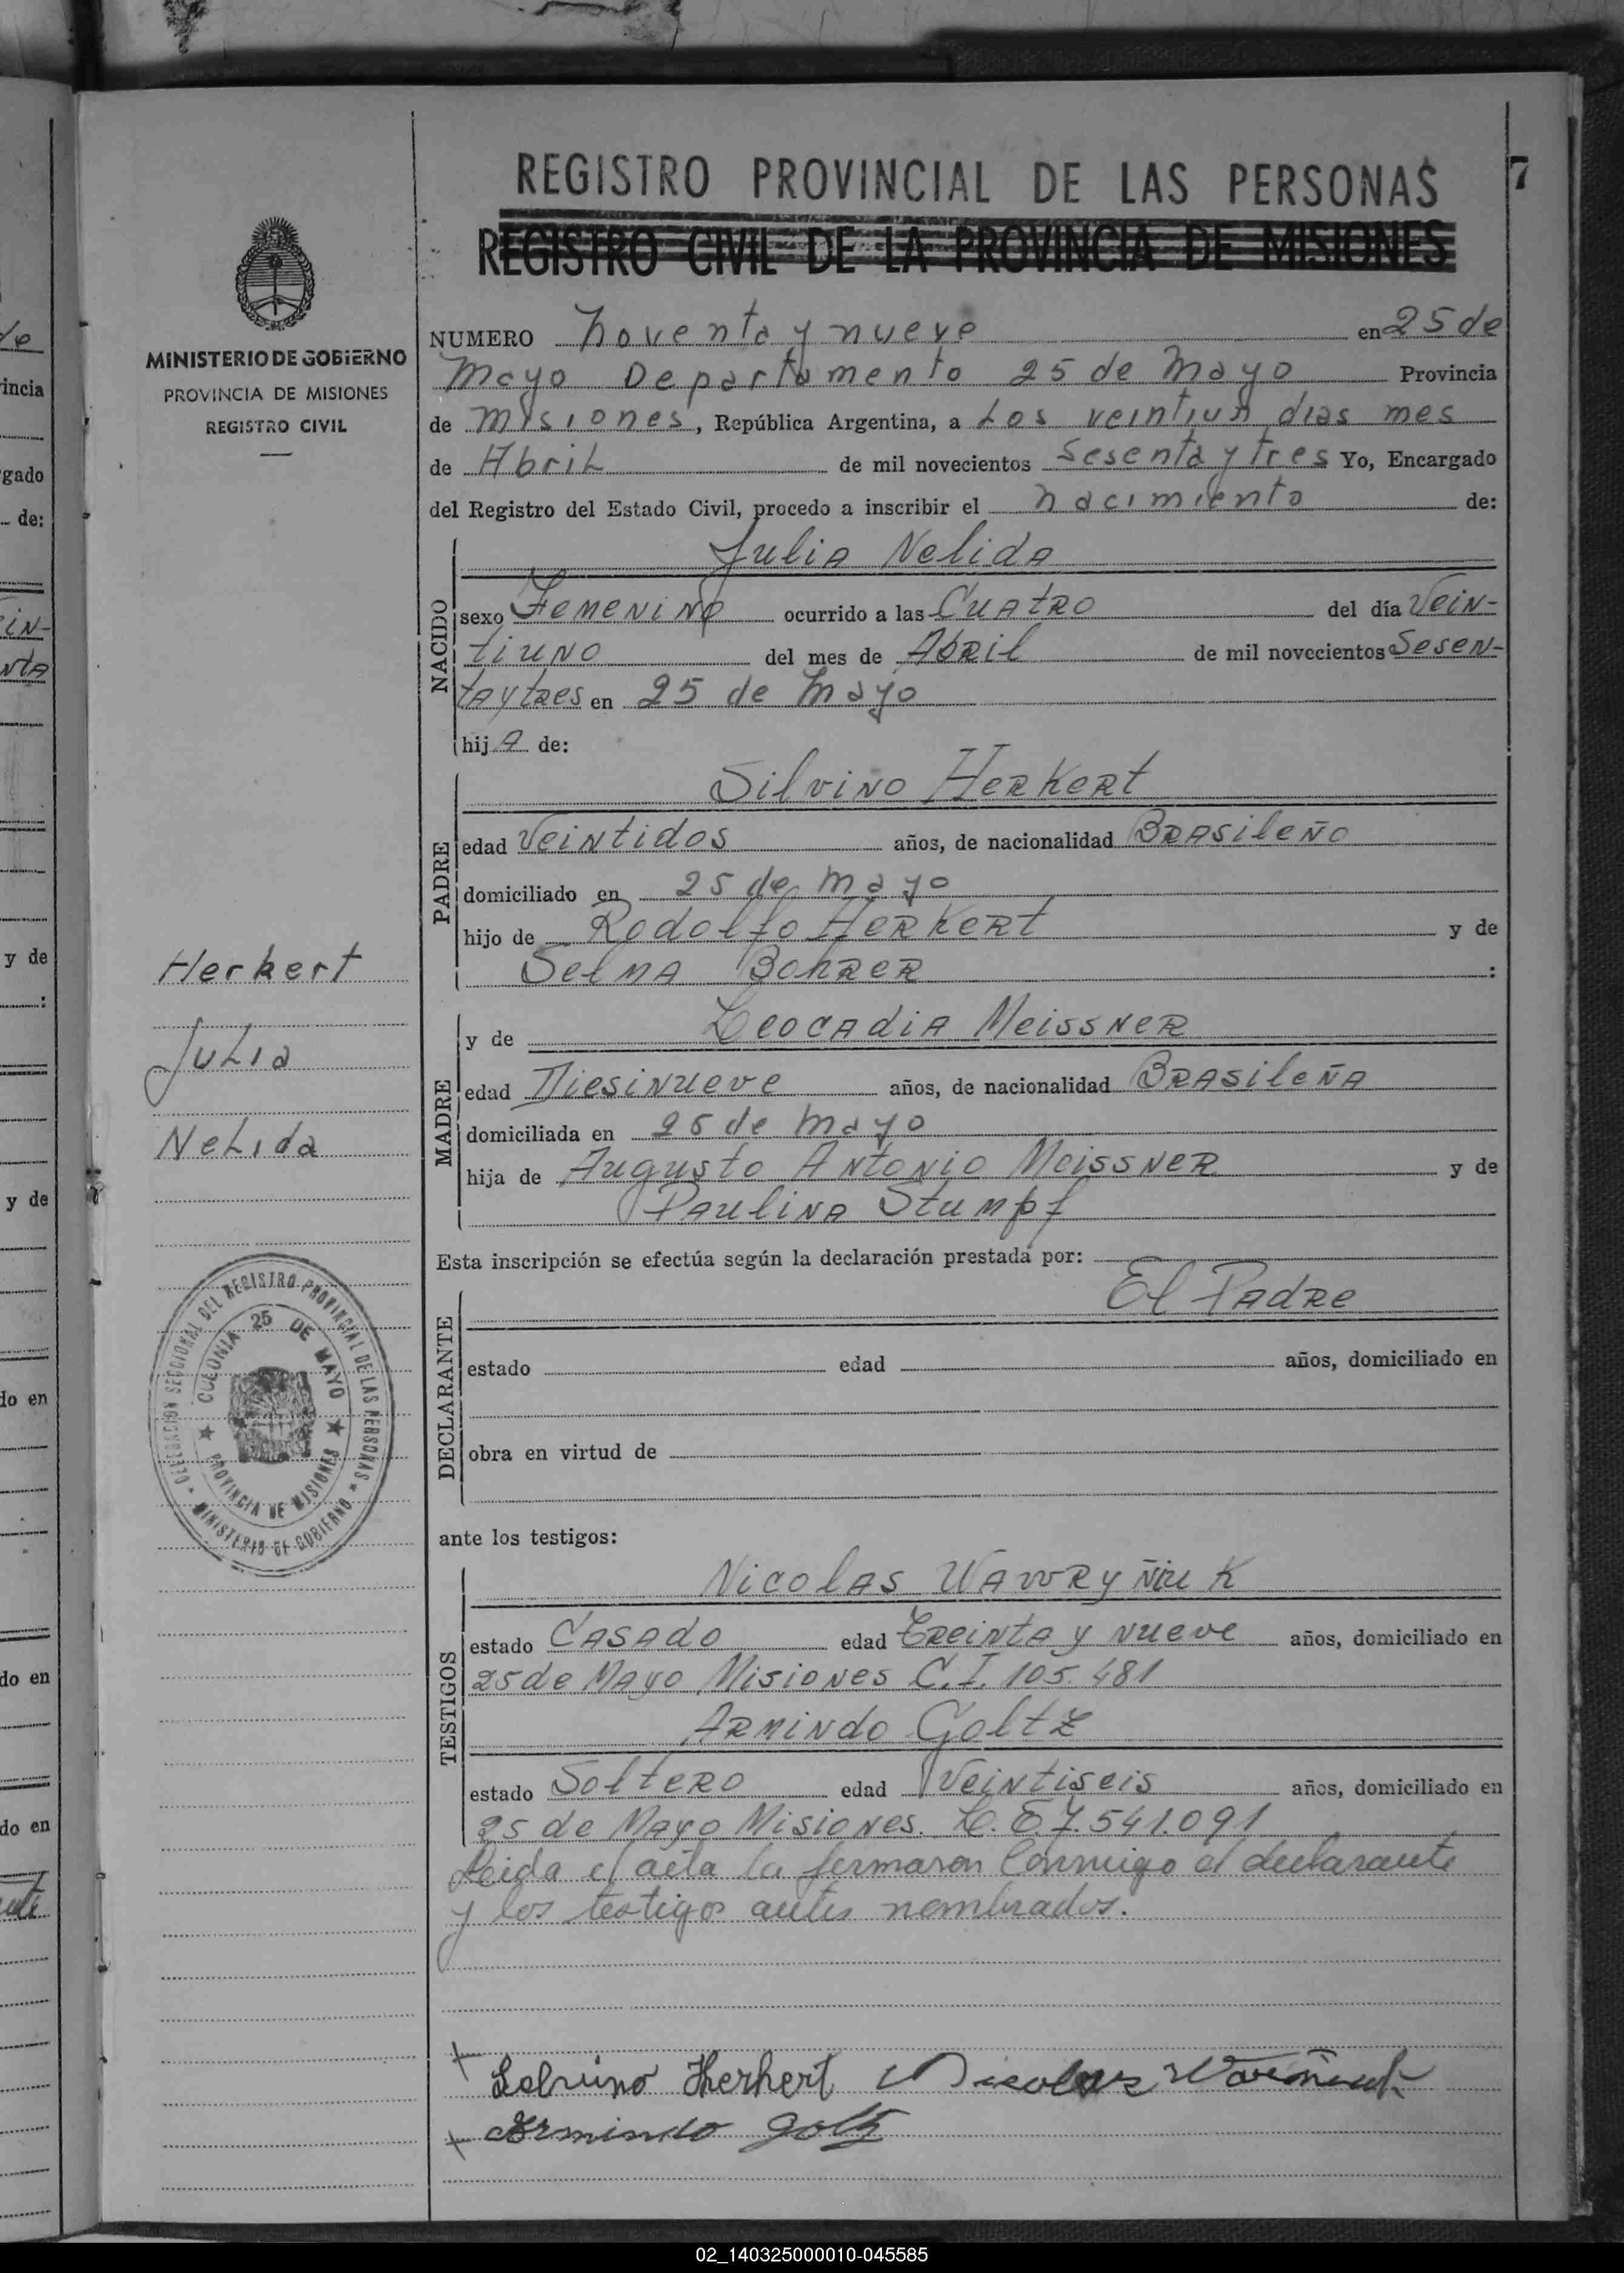 REGISTRO PROVINCIAL DE LAS PERSONAS
7
REGISTRO CIVIL DE LA PROVINCIA DE MISIONES
MINISTERIO DE GOBIERNO
PROVINCIA DE MISIONES
REGISTRO CIVIL
NUMERO Noventa y nueve en 25 de
Mayo Departamento 25 de Mayo Provincia
de Misiones, República Argentina, a Los veintiun dias mes
de Abril de mil novecientos Sesenta y tres Yo, Encargado
del Registro del Estado Civil, procedo a inscribir el nacimiento de:
NACIDO
Julia Nelida
sexo Femenino ocurrido a las Cuatro del día Vein-
tiuno del mes de Abril de mil novecientos Sesen-
taytres en 25 de Mayo
hija de:
PADRE
Silvino Herkert
edad Veintidos años, de nacionalidad Brasileño
domiciliado en 25 de Mayo
hijo de Rodolfo Herkert y de
Selma Bohrer :
MADRE
y de Leocadia Meissner
edad Diesinueve años, de nacionalidad Brasileña
domiciliada en 25 de Mayo
hija de Augusto Antonio Meissner y de
Paulina Stumpf
Herkert
Julia
Nelida
Esta inscripción se efectúa según la declaración prestada por:
DECLARANTE
El Padre
estado edad años, domiciliado en
obra en virtud de
DELEGACION SECCIONAL DEL REGISTRO PROVINCIAL DE LAS PERSONAS
MINISTERIO DE GOBIERNO
COLONIA 25 DE MAYO
PROVINCIA DE MISIONES
ante los testigos:
TESTIGOS
Nicolas Wawryñiuk
estado Casado edad Treinta y nueve años, domiciliado en
25 de Mayo Misiones C.I. 105.481
Armindo Goltz
estado Soltero edad Veintiseis años, domiciliado en
25 de Mayo Misiones. L.E. 7.541.091
Leida el acta la firmaron conmigo el declarante
y los testigos antes nombrados.
Selvino Herkert Nicolas
Armindo Goltz
de
incia
gado
de:
in-
nta
y de
:
y de
do en
do en
do en
02_140325000010-045585